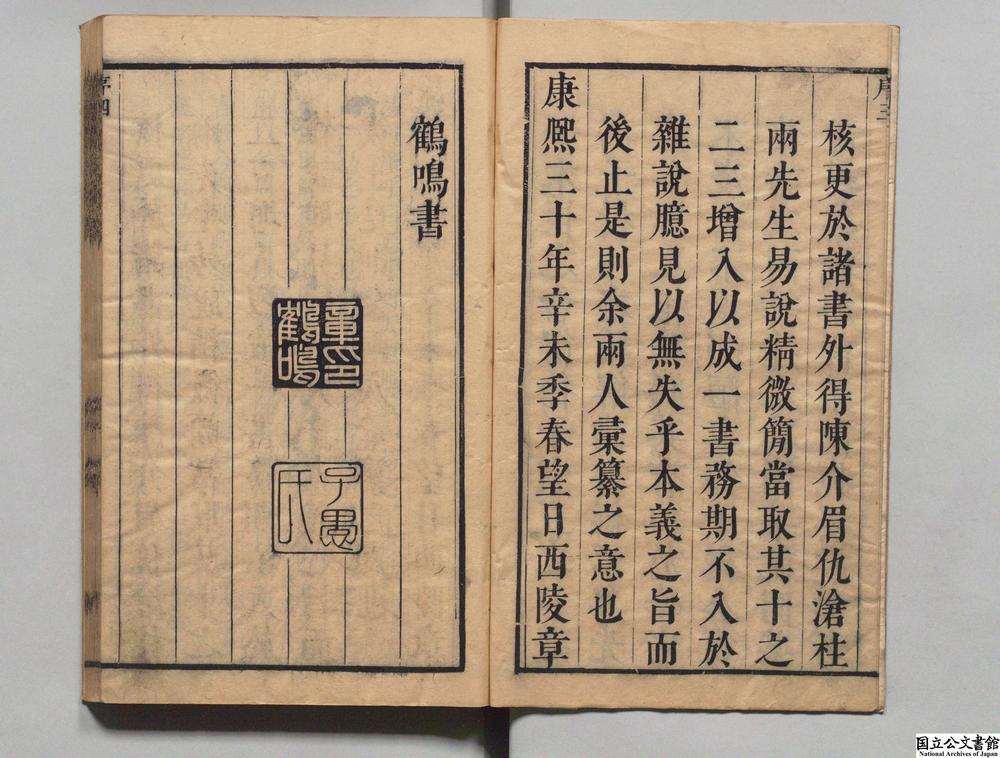 序三
核更於諸書外得陳介眉仇滄柱
兩先生易說精微簡當取其十之
二三增入以成一書務期不入於
雜說臆見以無失乎本義之旨而
後止是則余兩人彙纂之意也
康熙三十年辛未季春望日西陵章
鶴鳴書
章印
鶴鳴
子愚
氏
序四
国立公文書館
National Archives of Japan